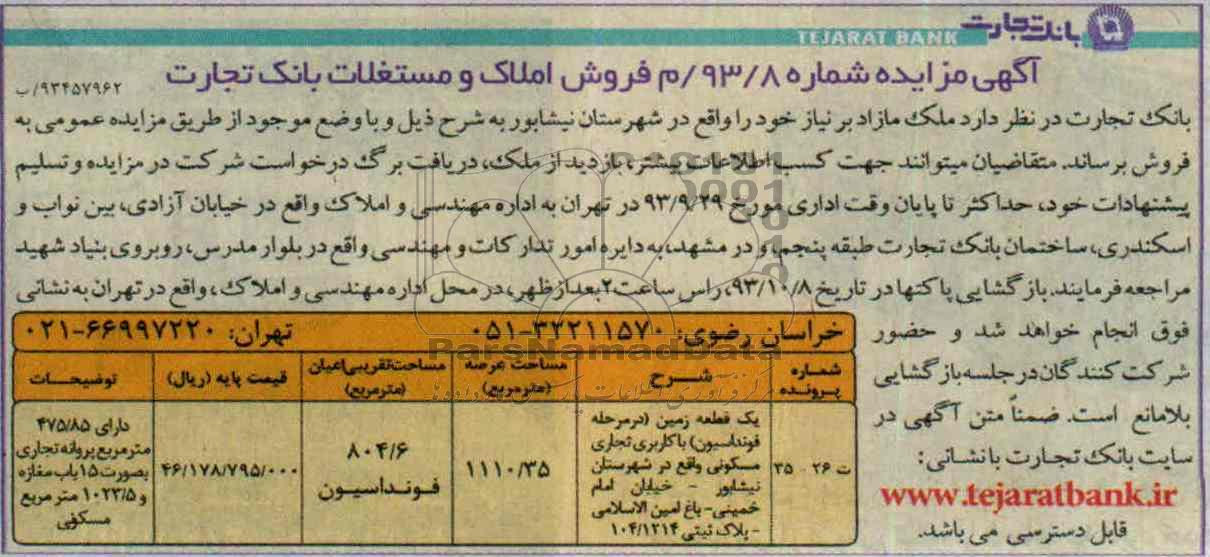 بانک تجارت
TEJARAT BANK
آگهی مزایده شماره ۹۳/۸/م فروش املاک و مستغلات بانک تجارت
۹۳۴۵۷۹۶۲/ب
بانک تجارت در نظر دارد ملک مازاد بر نیاز خود را واقع در شهرستان نیشابور به شرح ذیل و با وضع موجود از طریق مزایده عمومی به
فروش برساند. متقاضیان میتوانند جهت کسب اطلاعات بیشتر، بازدید از ملک، دریافت برگ درخواست شرکت در مزایده و تسلیم
پیشنهادات خود، حداکثر تا پایان وقت اداری مورخ ۹۳/۹/۲۹ در تهران به اداره مهندسی و املاک واقع در خیابان آزادی، بین نواب و
اسکندری، ساختمان بانک تجارت طبقه پنجم و در مشهد، به دایره امور تدارکات و مهندسی واقع در بلوار مدرس، روبروی بنیاد شهید
مراجعه فرمایند. بازگشایی پاکتها در تاریخ ۹۳/۱۰/۸، راس ساعت ۲ بعدازظهر، در محل اداره مهندسی و املاک، واقع در تهران به نشانی
فوق انجام خواهد شد و حضور
شرکت کنندگان در جلسه بازگشایی
بلامانع است. ضمناً متن آگهی در
سایت بانک تجارت با نشانی:
www.tejaratbank.ir
قابل دسترسی می باشد.
خراسان رضوی: ۳۲۲۱۱۵۷۰-۰۵۱ تهران: ۶۶۹۹۷۲۲۰-۰۲۱
شماره پرونده
شرح
مساحت عرصه (مترمربع)
مساحت تقریبی اعیان (مترمربع)
قیمت پایه (ریال)
توضیحات
ت ۲۶ - ۳۵
یک قطعه زمین (درمرحله
فونداسیون) با کاربری تجاری
مسکونی واقع در شهرستان
نیشابور - خیابان امام
خمینی- باغ امین الاسلامی
- پلاک ثبتی ۱۰۴/۱۲۱۴
۱۱۱۰/۳۵
۸۰۴/۶
فونداسیون
۴۶/۱۷۸/۷۹۵/۰۰۰
دارای ۴۷۵/۸۵
مترمربع پروانه تجاری
بصورت ۱۵ باب مغازه
و ۱۰۲۳/۵ متر مربع
مسکونی
ParsNamadData